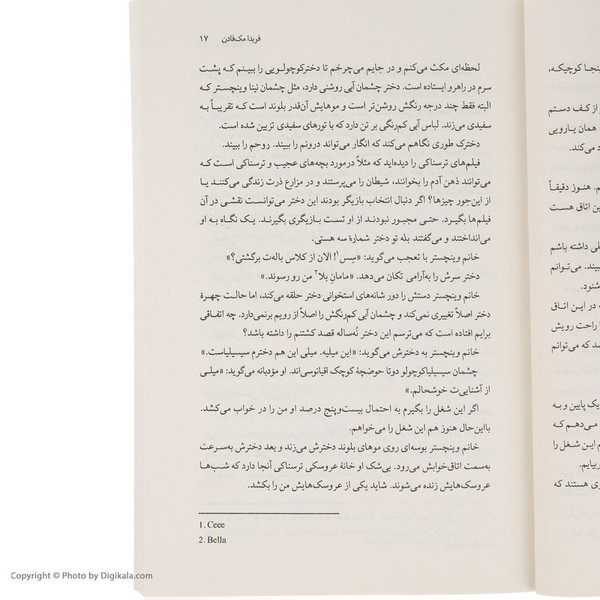 ۱۷ فریدا مک‌فادن
لحظه‌ای مکث می‌کنم و در جایم می‌چرخم تا دخترکوچولویی را ببینم که پشت
سرم در راهرو ایستاده است. دختر چشمان آبی روشنی دارد، مثل چشمان نینا وینچستر که
البته فقط چند درجه رنگش روشن‌تر است و موهایش آن‌قدر بلوند است که تقریباً به
سفیدی می‌زند. لباس آبی کم‌رنگی بر تن دارد که با تورهای سفیدی تزیین شده است.
دخترک طوری نگاهم می‌کند که انگار می‌تواند درونم را ببیند. روحم را ببیند.
فیلم‌های ترسناکی را دیده‌اید که مثلاً درمورد بچه‌های عجیب و ترسناکی است که
می‌توانند ذهن آدم را بخوانند، شیطان را می‌پرستند و در مزارع ذرت زندگی می‌کنند یا
از این‌جور چیزها؟ اگر دنبال انتخاب بازیگر بودند این دختر می‌توانست نقشی در آن
فیلم‌ها بگیرد. حتی مجبور نبودند از او تست بازیگری بگیرند. یک نگاه به او
می‌انداختند و می‌گفتند بله تو دختر شمارهٔ سه هستی.
خانم وینچستر با تعجب می‌گوید: «سِس¹! الان از کلاس باله‌ت برگشتی؟»
دختر سرش را به‌آرامی تکان می‌دهد. «مامانِ بِلا² من رو رسوند.»
خانم وینچستر دستش را دور شانه‌های استخوانی دختر حلقه می‌کند، اما حالت چهرهٔ
دختر اصلاً تغییری نمی‌کند و چشمان آبی کم‌رنگش را اصلاً از رویم برنمی‌دارد. چه اتفاقی
برایم افتاده است که می‌ترسم این دختر نُه‌ساله قصد کشتنم را داشته باشد؟
خانم وینچستر به دخترش می‌گوید: «این میلیه. میلی این هم دخترم سیسیلیاست.»
چشمان سیسیلیاکوچولو دوتا حوضچهٔ کوچک اقیانوسی‌اند. او مؤدبانه می‌گوید: «میلی از
آشنایی‌ت خوشحالم.»
اگر این شغل را بگیرم به احتمال بیست‌وپنج درصد او من را در خواب می‌کشد.
بااین‌حال هنوز هم این شغل را می‌خواهم.
خانم وینچستر بوسه‌ای روی موهای بلوند دخترش می‌زند و بعد دخترش به‌سرعت
به‌سمت اتاق‌خوابش می‌رود. بی‌شک او خانهٔ عروسکی ترسناکی آنجا دارد که شب‌ها
عروسک‌هایش زنده می‌شوند. شاید یکی از عروسک‌هایش من را بکشد.
1. Cece
2. Bella
ینجا کوچیکه،
از کف دستم
همان پارویی
د می‌کند.
م. هنوز دقیقاً
ین اتاق هست
لی داشته باشم
ببیند. می‌توانم
شنود.
ه در این اتاق
ا راحت رویش
سد که می‌توانم
یک پایین و به
می‌دهم که
م این شغل را
بیابم.
وی هستند که
Copyright © Photo by Digikala.com